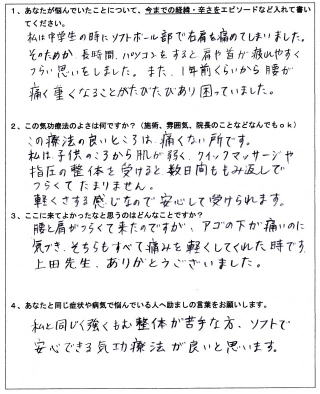 1、あなたが悩んでいたことについて、今までの経緯・辛さをエピソードなど入れて書い
てください。
私は中学生の時にソフトボール部で右肩を痛めてしまいました。
そのためか、長時間、パソコンをすると肩や首が疲れやすく
つらい思いをしました。また、1年前くらいから腰が
痛く重くなることがたびたびあり困っていました。
2、この気功療法のよさは何ですか？（施術、雰囲気、院長のことなどなんでもｏｋ）
この療法の良いところは痛くない所です。
私は子供のころから肌が弱く、クイックマッサージや
指圧の整体を受けると数日間ももみ返しで
つらくてたまりません。
軽くさする感じなので安心して受けられます。
3、ここに来てよかったなと思うのはどんなことですか？
腰と肩がつらくて来たのですが、アゴの下が痛いのに
気づき、そちらもすべて痛みを軽くしてくれた時です。
上田先生、ありがとうございました。
4、あなたと同じ症状や病気で悩んでいる人へ励ましの言葉をお願いします。
私と同じく強くもむ整体が苦手な方、ソフトで
安心できる気功療法が良いと思います。